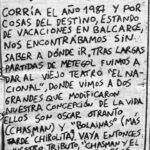 CORRÍA EL AÑO 1987 Y POR
COSAS DEL DESTINO, ESTANDO
DE VACACIONES EN BALCARCE,
NOS ENCONTRÁBAMOS SIN
SABER A DONDE IR, TRAS LARGAS
PARTIDAS DE METEGOL FUIMOS A
DAR AL VIEJO TEATRO "EL NA-
CIONAL", DONDE VIMOS A DOS
GRANDES QUE MODIFICARON
NUESTRA CONCEPCIÓN DE LA VIDA
ELLOS SON OSCAR OTRANTO
(CHASMAN) Y "BOLAINAS" (MÁS
TARDE CHIROLITA), VAYA ENTONCES
NUESTRO TRIBUTO "CHASMAN Y EL